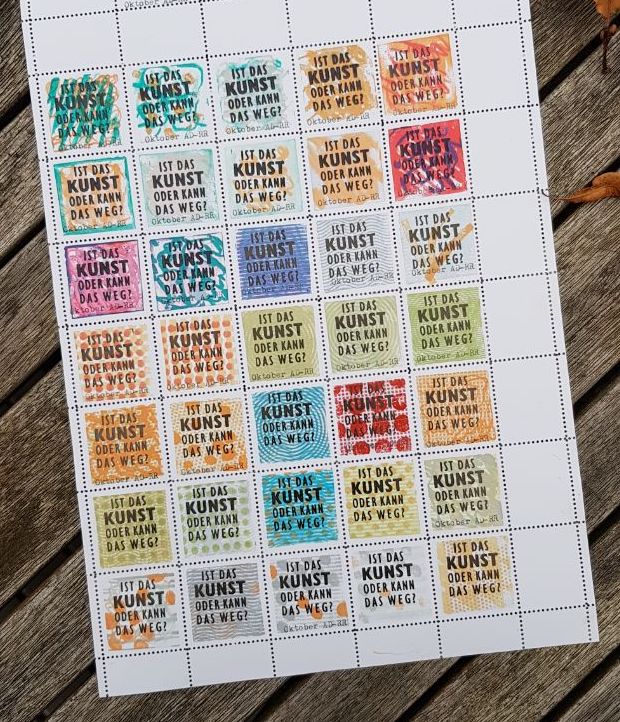 IST DAS
KUNST
ODER KANN
DAS WEG?
Oktober AD-RR
IST DAS
KUNST
ODER KANN
DAS WEG?
Oktober AD-RR
IST DAS
KUNST
ODER KANN
DAS WEG?
Oktober AD-RR
IST DAS
KUNST
ODER KANN
DAS WEG?
Oktober AD-RR
IST DAS
KUNST
ODER KANN
DAS WEG?
Oktober AD-RR
IST DAS
KUNST
ODER KANN
DAS WEG?
IST DAS
KUNST
ODER KANN
DAS WEG?
Oktober AD-RR
IST DAS
KUNST
ODER KANN
DAS WEG?
Oktober AD-RR
IST DAS
KUNST
ODER KANN
DAS WEG?
Oktober AD-RR
IST DAS
KUNST
ODER KANN
DAS WEG?
Oktober AD-RR
IST DAS
KUNST
ODER KANN
DAS WEG?
Oktober AD-RR
IST DAS
KUNST
ODER KANN
DAS WEG?
Oktober AD-RR
IST DAS
KUNST
ODER KANN
DAS WEG?
Oktober AD-RR
IST DAS
KUNST
ODER KANN
DAS WEG?
Oktober AD-RR
IST DAS
KUNST
ODER KANN
DAS WEG?
Oktober AD-RR
IST DAS
KUNST
ODER KANN
DAS WEG?
Oktober AD-RR
IST DAS
KUNST
ODER KANN
DAS WEG?
Oktober AD-RR
IST DAS
KUNST
ODER KANN
DAS WEG?
Oktober AD-RR
IST DAS
KUNST
ODER KANN
DAS WEG?
Oktober AD-RR
IST DAS
KUNST
ODER KANN
DAS WEG?
Oktober AD-RR
IST DAS
KUNST
ODER KANN
DAS WEG?
Oktober AD-RR
IST DAS
KUNST
ODER KANN
DAS WEG?
Oktober AD-RR
IST DAS
KUNST
ODER KANN
DAS WEG?
IST DAS
KUNST
ODER KANN
DAS WEG?
Oktober AD-RR
IST DAS
KUNST
ODER KANN
DAS WEG?
Oktober AD-RR
IST DAS
KUNST
ODER KANN
DAS WEG?
IST DAS
KUNST
ODER KANN
DAS WEG?
IST DAS
KUNST
ODER KANN
DAS WEG?
IST DAS
KUNST
ODER KANN
DAS WEG?
IST DAS
KUNST
ODER KANN
DAS WEG?
Oktober AD-RR
IST DAS
KUNST
ODER KANN
DAS WEG?
IST DAS
KUNST
ODER KANN
DAS WEG?
IST DAS
KUNST
ODER KANN
DAS WEG?
Oktober AD-RR
IST DAS
KUNST
ODER KANN
DAS WEG?
IST DAS
KUNST
ODER KANN
DAS WEG?